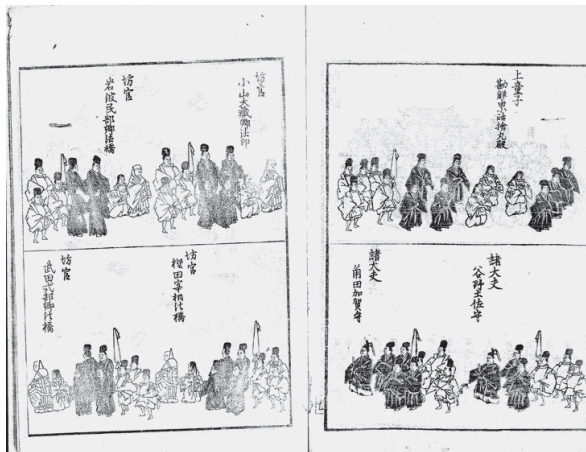 上童子
勘解由小路捨丸殿
諸大夫
谷野土佐守
諸大夫
甫田加賀守
坊官
小山大蔵卿法印
坊官
岩波民部卿法橋
坊官
樫田宰相法橋
坊官
武田式部卿法橋